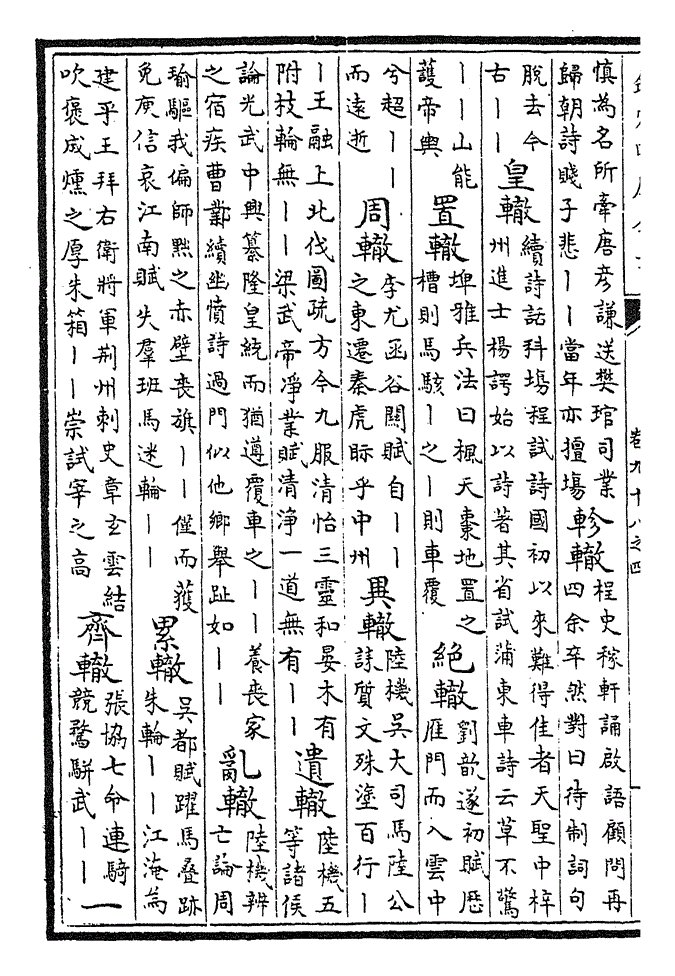 卷九十八之四
慎為名所牽唐彥謙送樊琯司業
歸朝詩賤子悲丨丨當年亦擅塲
軫轍
桯史稼軒誦啟語顧問再
四余卒然對曰待制詞句
脫去今
古丨丨
皇轍
續詩話科塲程試詩國初以來難得佳者天聖中梓
州進士楊諤始以詩著其省試蒲東車詩云草不驚
丨丨山能
護帝輿
置轍
埤雅兵法曰楓天棗地置之
槽則馬駭丨之丨則車覆
絶轍
劉歆遂初賦歷
雁門而入雲中
兮超丨丨
而遠逝
周轍
李尤函谷關賦自丨丨
之東遷秦虎眎乎中州
異轍
陸機吳大司馬陸公
誄質文殊塗百行丨
丨王融上北伐圖疏方今九服清怡三靈和晏木有
附枝輪無丨丨梁武帝淨業賦清淨一道無有丨丨
遺轍
陸機五
等諸侯
論光武中興纂隆皇統而猶遵覆車之丨丨養喪家
之宿疾曹鄴續幽憤詩過門似他鄉舉趾如丨丨
亂轍
陸機辨
亡論周
瑜驅我偏師黜之赤壁喪旗丨丨僅而獲
免庾信哀江南賦失羣班馬迷輪丨丨
累轍
吳都賦躍馬疊跡
朱輪丨丨江淹為
建平王拜右衛將軍荆州刺史章玄雲結
吹褒成燻之厚朱箱丨丨崇試宰之高
齊轍
張協七命連騎
競騖駢武丨丨
一